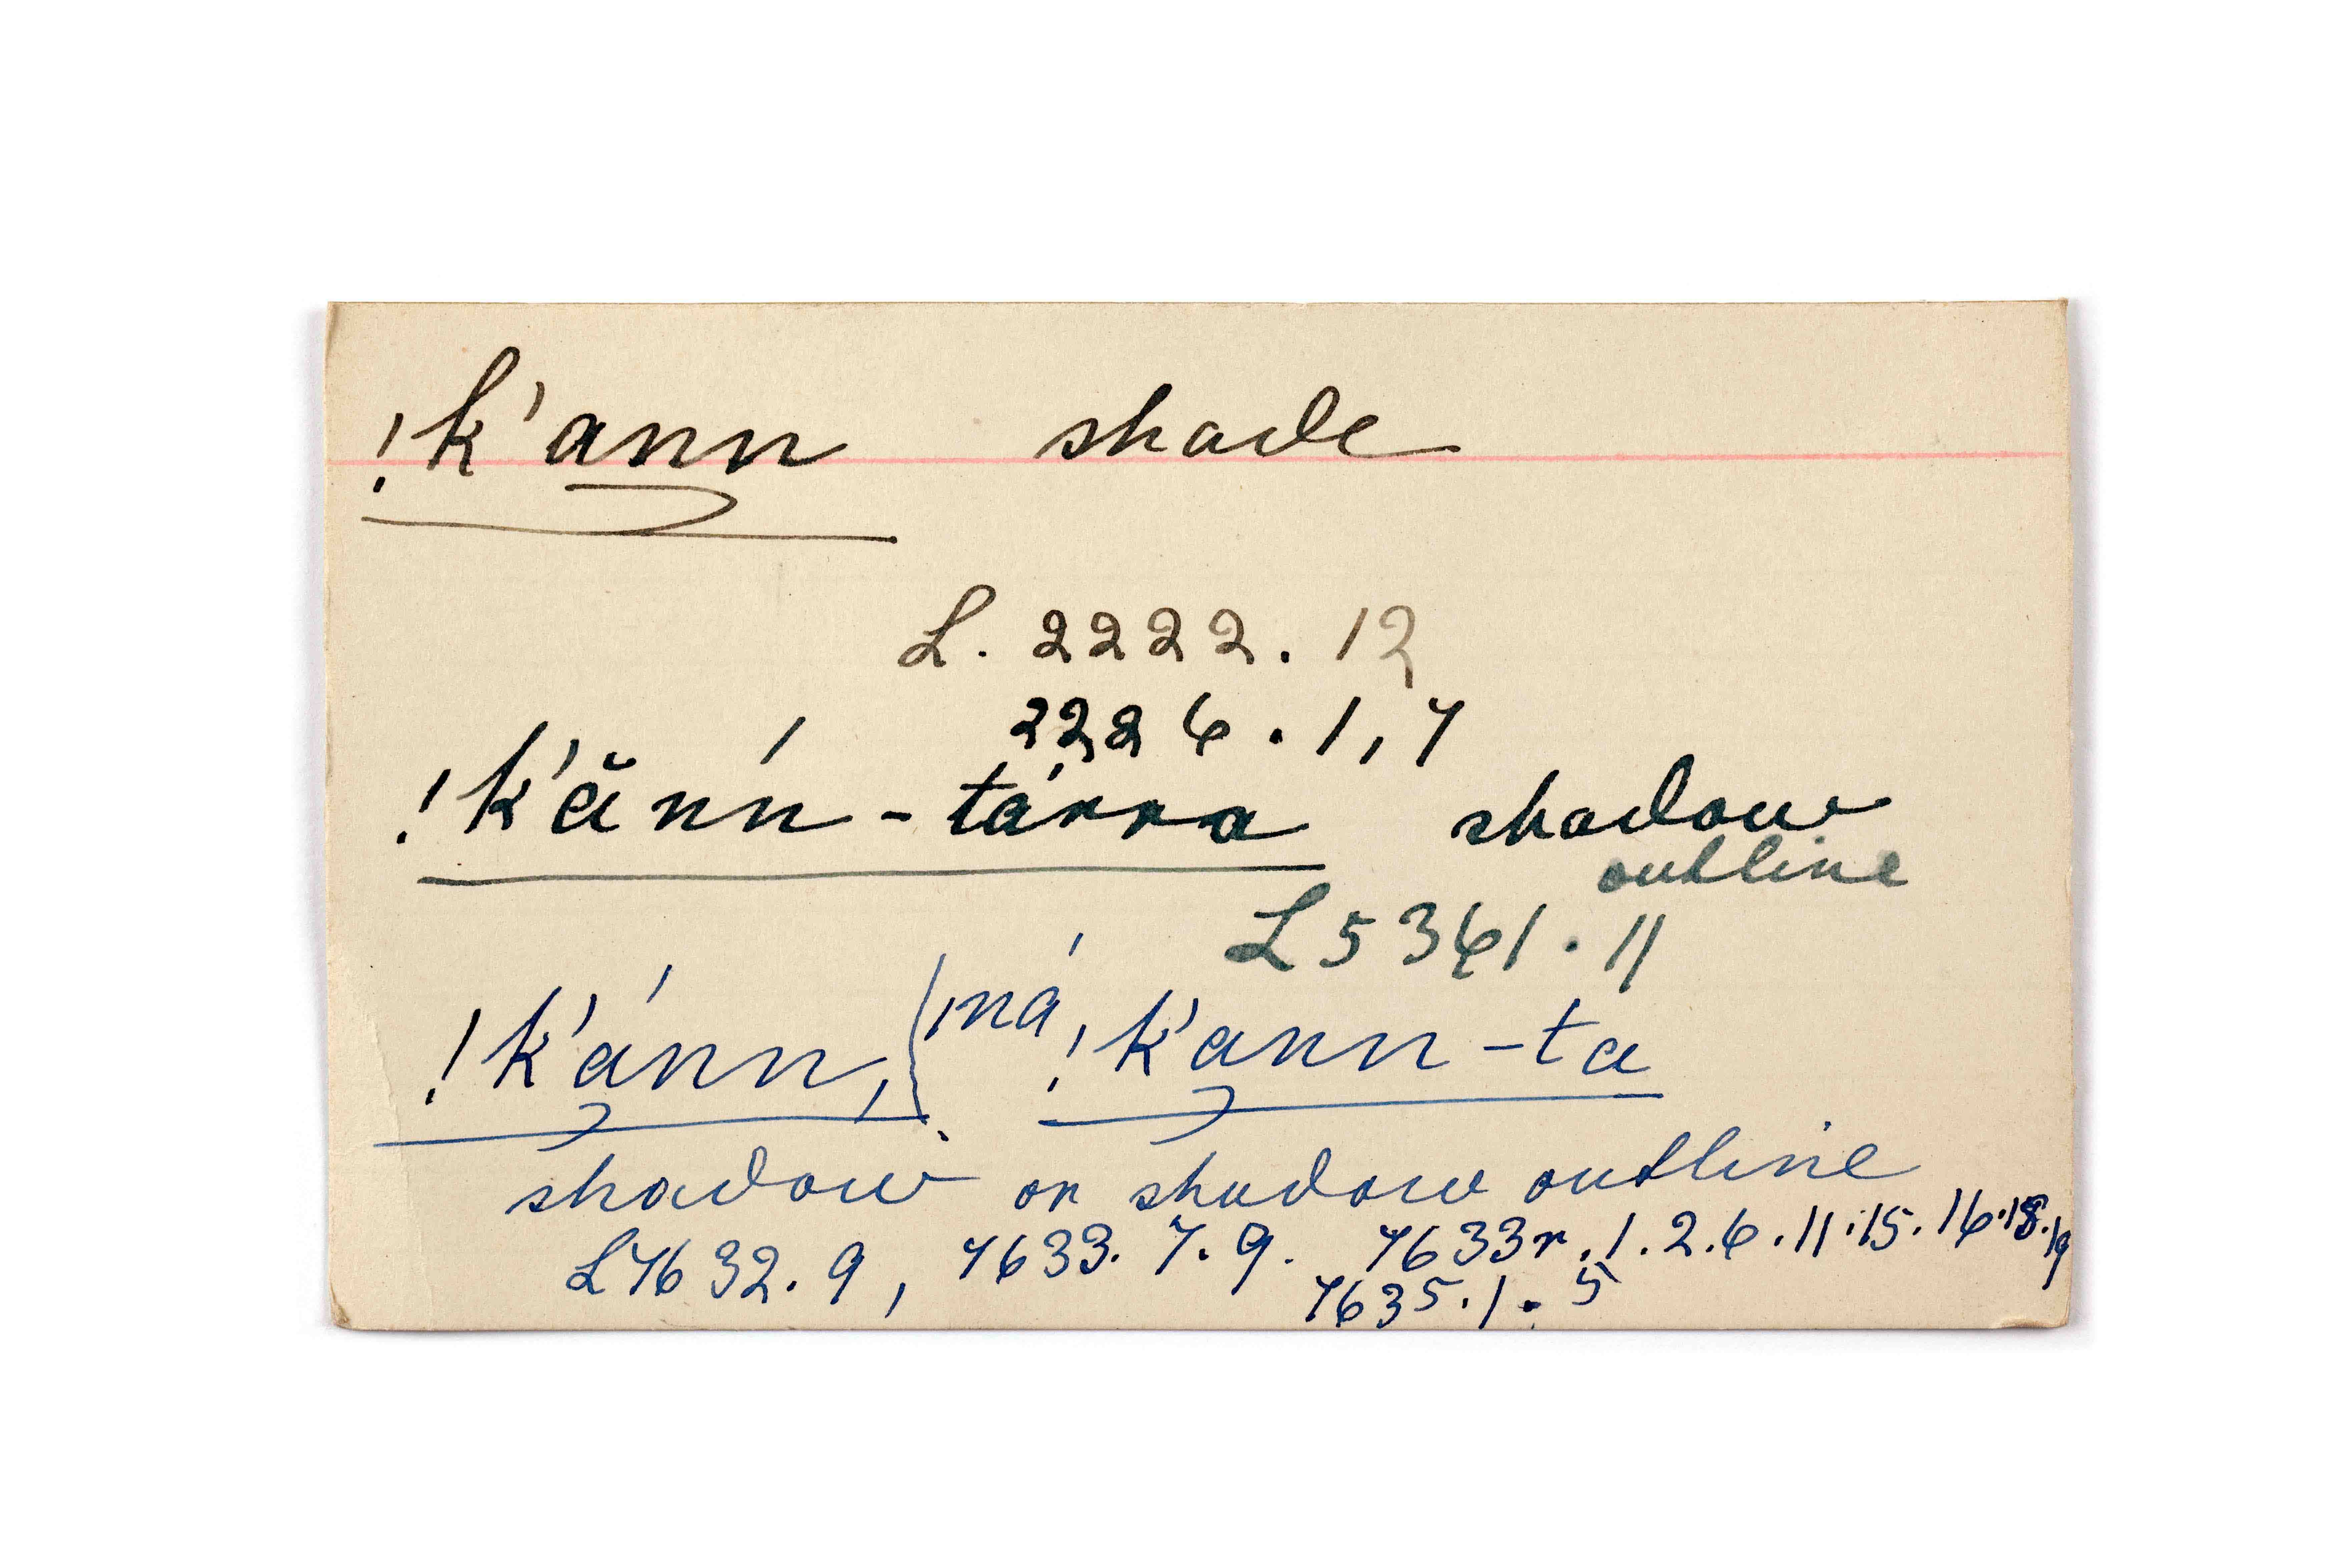 !k'ann shade
L. 2222. 12
2226. 1, 7
!k'ănń-tárra shadow
outline
L5361. 11
!k'ánń, (ná, !k'ann-ta
shadow or shadow outline
L7632. 9, 7633. 7. 9. 7633r. 1. 2. 6. 11. 15. 16. 18. 19
7635. 1. 5